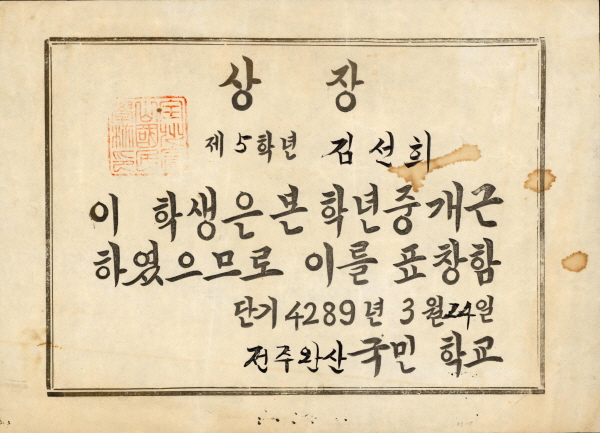 상 장
제5학년 김선희
이 학생은 본 학년중 개근
하였으므로 이를 표창함
단기 4289년 3월 24일
전주완산국민 학교